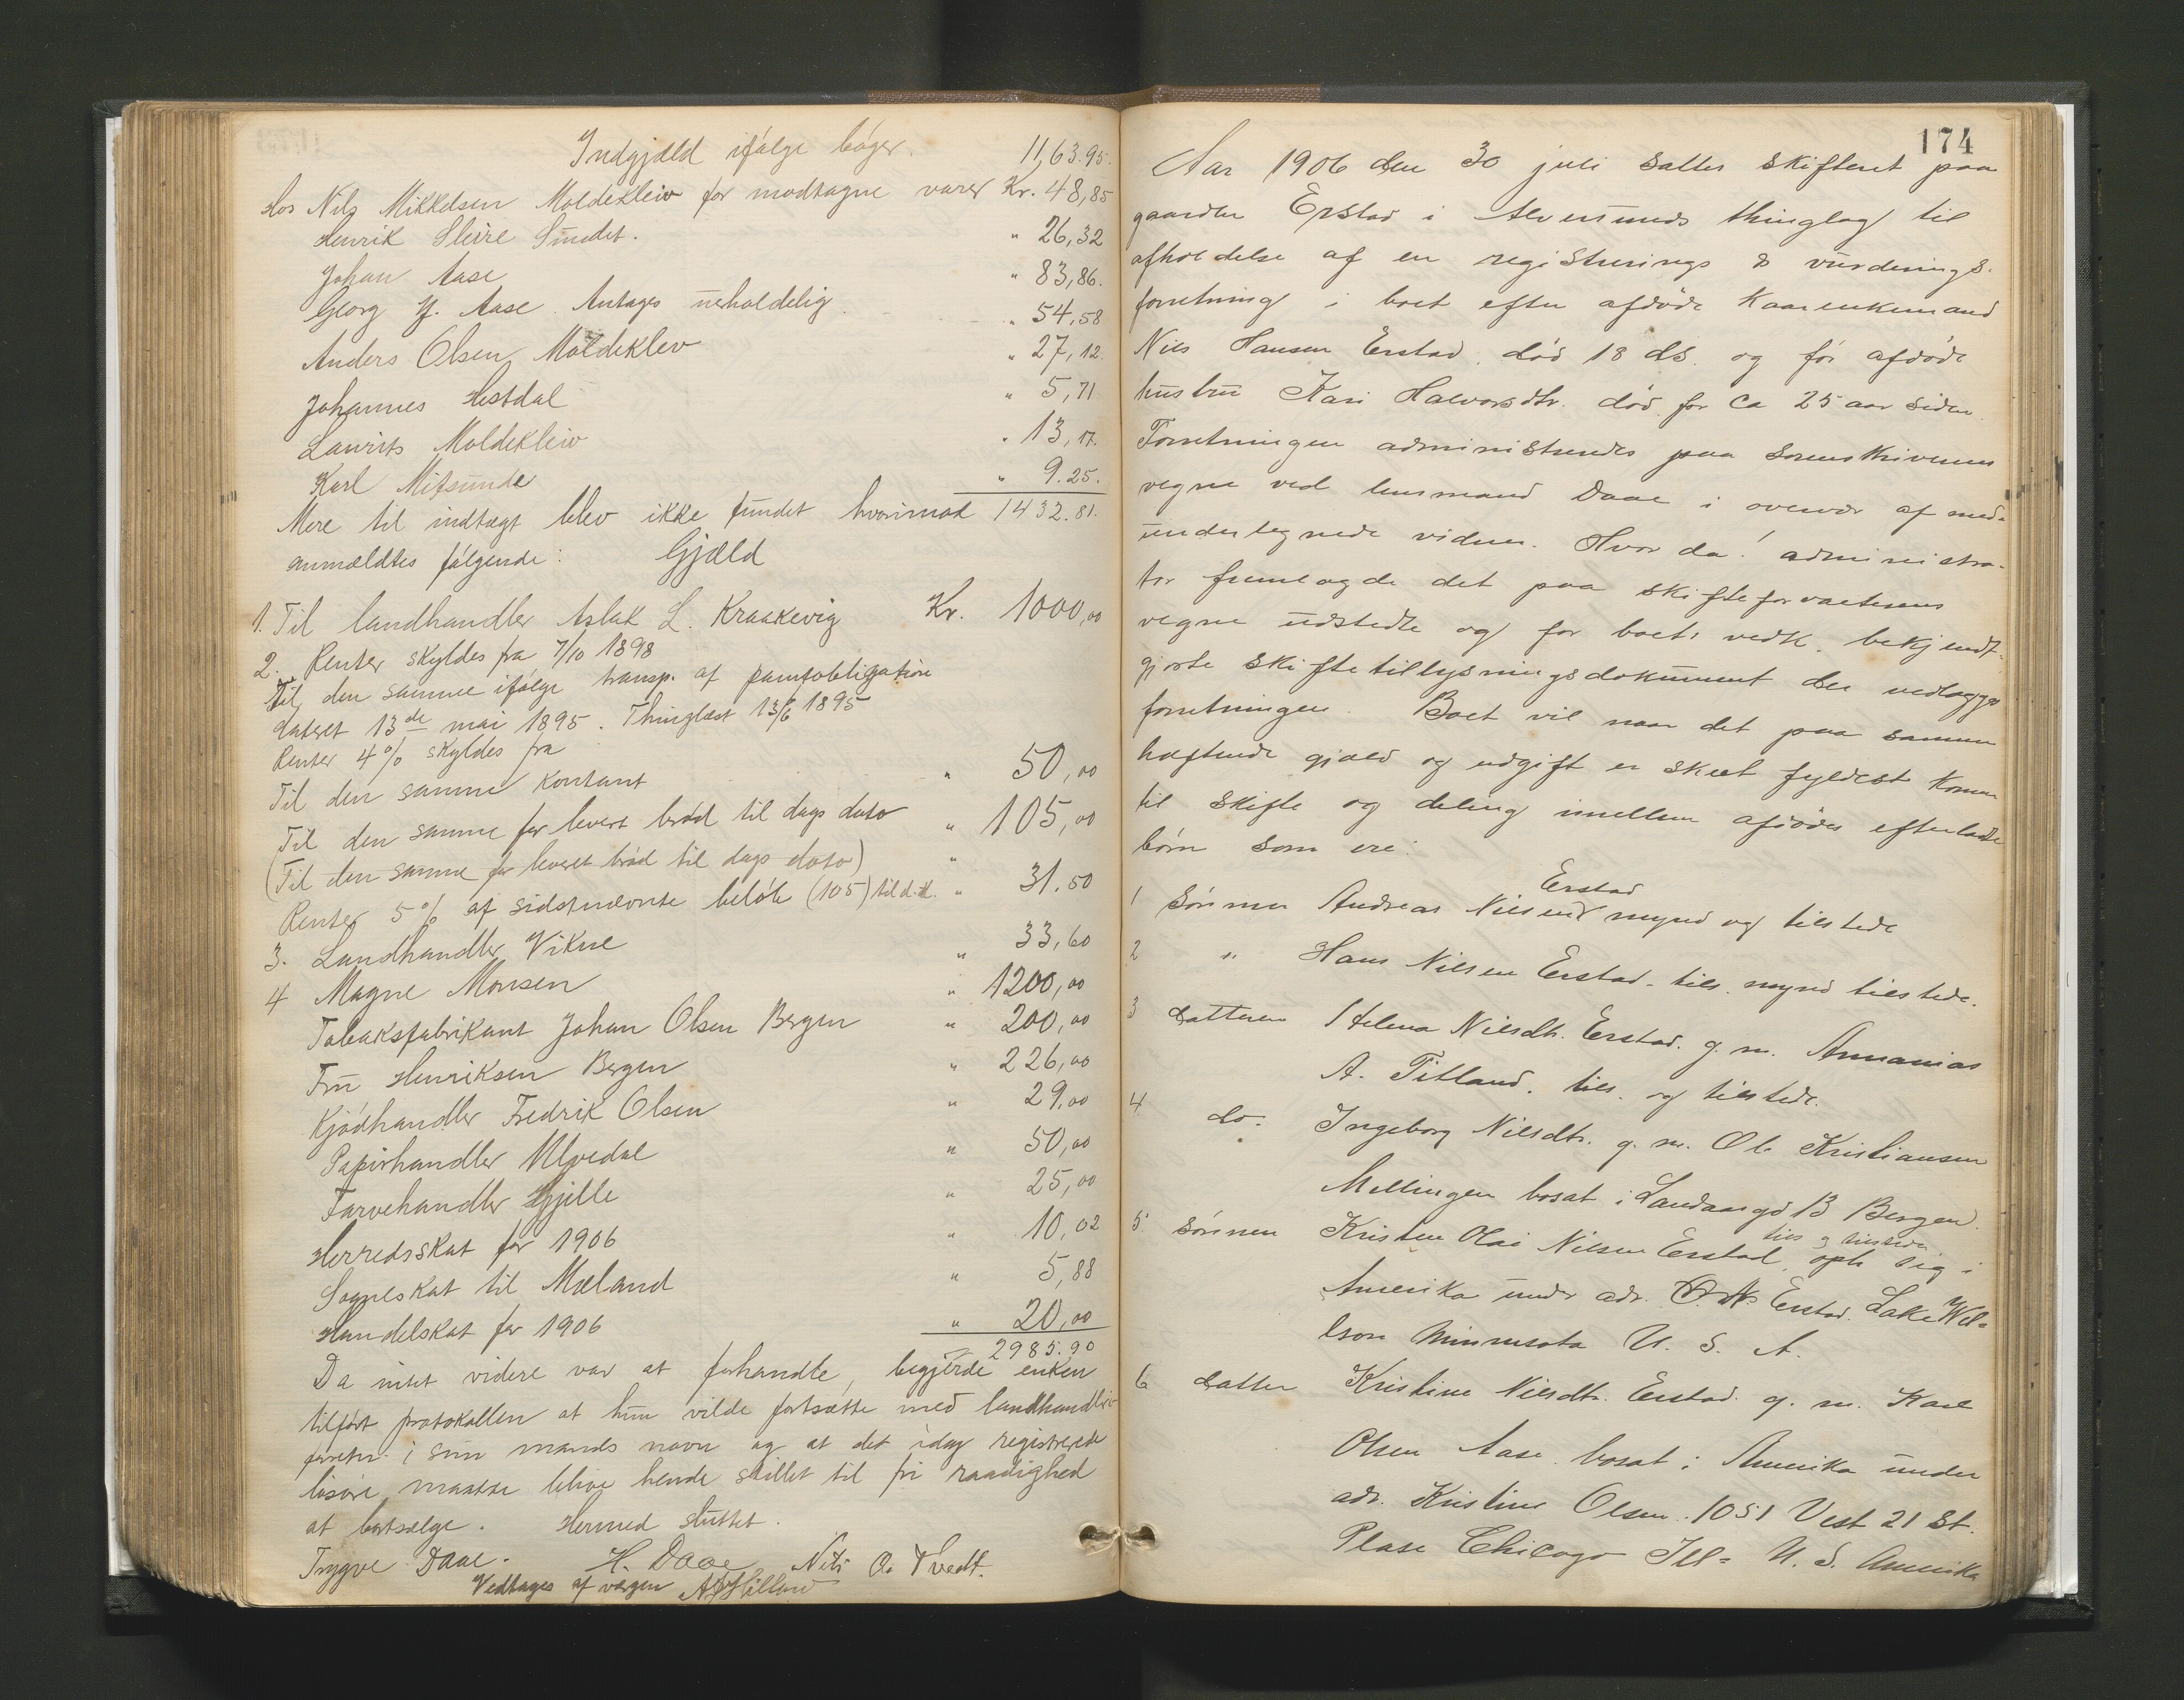 Indgjæld ifølge bøger. 11,63.95.
Hos Nils Mikkelsen Moldekleiv for modtagne varer Kr. 48,85
Henrik Sleire Sundet. " 26,32
Johan Aase " 83,86.
Georg J. Aase. Antages uerholdelig. " 54,58
Anders Olsen Moldeklev " 27,12.
Johannes Hestdal " 5,71
Laurits Moldekleiv " 13,17.
Karl Mitsunde " 9.25.
Mere til indtægt blev ikke fundet hvorimod 1432.81.
anmældtes følgende: Gjæld
1. Til landhandler Aslak L. Kraakevig Kr. 1000,00
2. Renter skyldes fra 7/10 1898
Til den samme ifølge transp. af pantobligation
dateret 13de mai 1895. Thinglæst 13/6 1895
Renter 4% skyldes fra
Til den samme kontant " 50,00
Til den samme for levert brød til dags dato " 105,00
(Til den samme for leveret brød til dags dato) "
Renter 5% af sidstnævnte beløb (105) til d.d. " 31.50
3. Landhandler Vikne " 33,60
4 Magne Monsen " 1200,00
Tobaksfabrikant Johan Olsen Bergen " 200,00
Fru Henriksen Bergen " 226,00
Kjødhandler Fredrik Olsen " 29,00
Papirhandler Ulvedal " 50,00
Farvehandler Gjille " 25,00
Herredsskat for 1906 " 10,02
Sogneskat til Mæland " 5,88
Handelskat for 1906 " 20,00
2985.90
Da intet videre var at forhandle, begjerde enken
tilført protokollen at hun vilde fortsætte med landhandler
forretn. i sin mands navn og at det idag registrerede
løsøre maatte blive hende stillet til fri raadighed
at bortsælge. Hermed sluttet.
Trygve Daae. H. Daae Nils O. Tvedt.
Vedtages af værgen
174
Aar 1906 den 30 juli sattes skifteret paa
gaarden Erstad i Alversunds thinglag til
afholdelse af en registrerings & vurderings-
forretning i boet efter afdøde kaarenkemand
Nils Hansen Erstad, død 18 ds. og før afdøde
hustru Kari Halvorsdtr. død for ca 25 aar siden.
Forretningen administreredes paa sorenskriverens
vegne ved lensmand Daae i overvær af med-
undertegnede vidner. Hvor da! administra-
tor fremlagde det paa skifteforvalterens
vegne udstedte og for boets vedk. bekjendt-
gjorte skiftetillysningsdokument der vedlægges
forretningen. Boet vil naar det paa samme
hæftende gjæld og udgift er skeet fyldest komme
til skifte og deling imellem afdødes efterladte
børn som ere:
1 Sønnen Andreas Nilsen Erstad mynd og tilstede
2 " Hans Nilsen Erstad - mynd tilstede.
3 datteren Helena Nilsdtr. Erstad. g. m. Annanias
A. Titland. og tilstede.
4 do. Ingeborg Nilsdtr. g. m. Ole Kristiansen
Mellingen bosat i Landaasgd 13 Bergen.
og tilstede
5 Sønnen Kristen Olai Nilsen Erstad, oph sig i
Amerika under adr. O. N. Erstad. Lake Wil-
lson Minnesota U. S. A.
6 datter Kristine Nilsdtr. Erstad g. m. Karl
Olsen Aase bosat i Amerika under
adr. Kristine Olsen. 1051 Vest 21 St.
Plase Chicago Ill= U. S. Amerika